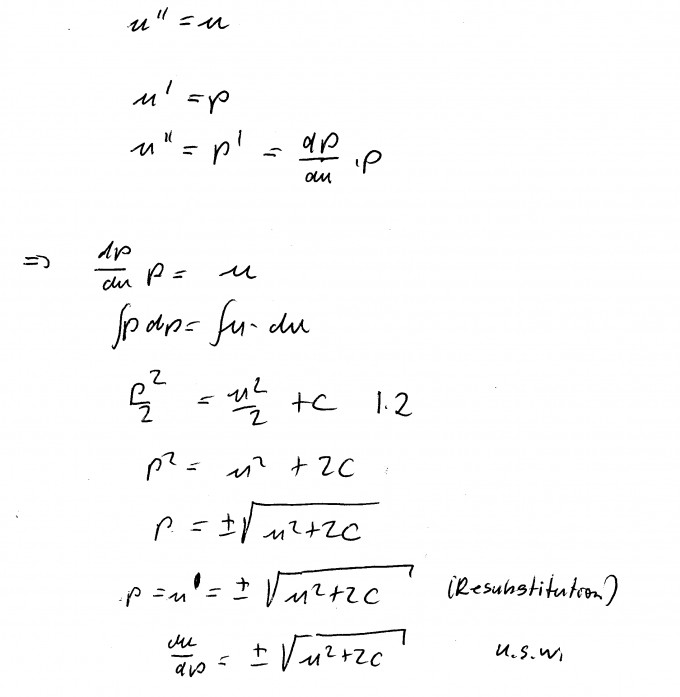 u'' = u
u' = p
u'' = p' = dp/du · p
⇒ dp/du p = u
∫p dp = ∫u · du
p²/2 = u²/2 + C  |·2
p² = u² + 2C
p = ±√(u²+2C)
p = u' = ± √(u²+2C) (Resubstitution)
du/dρ = ± √(u²+2C) u.s.w.